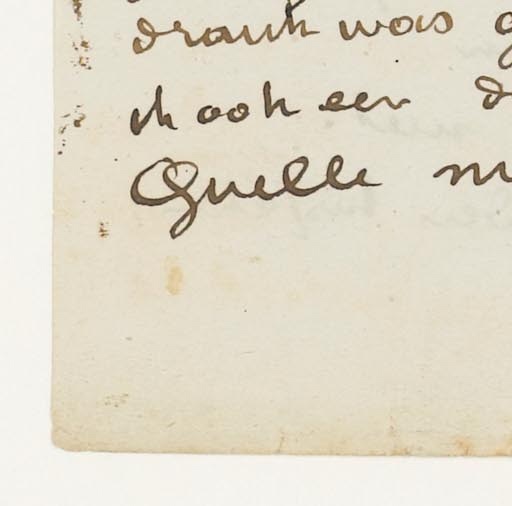 drank was g
ik ook een d
Quelle m